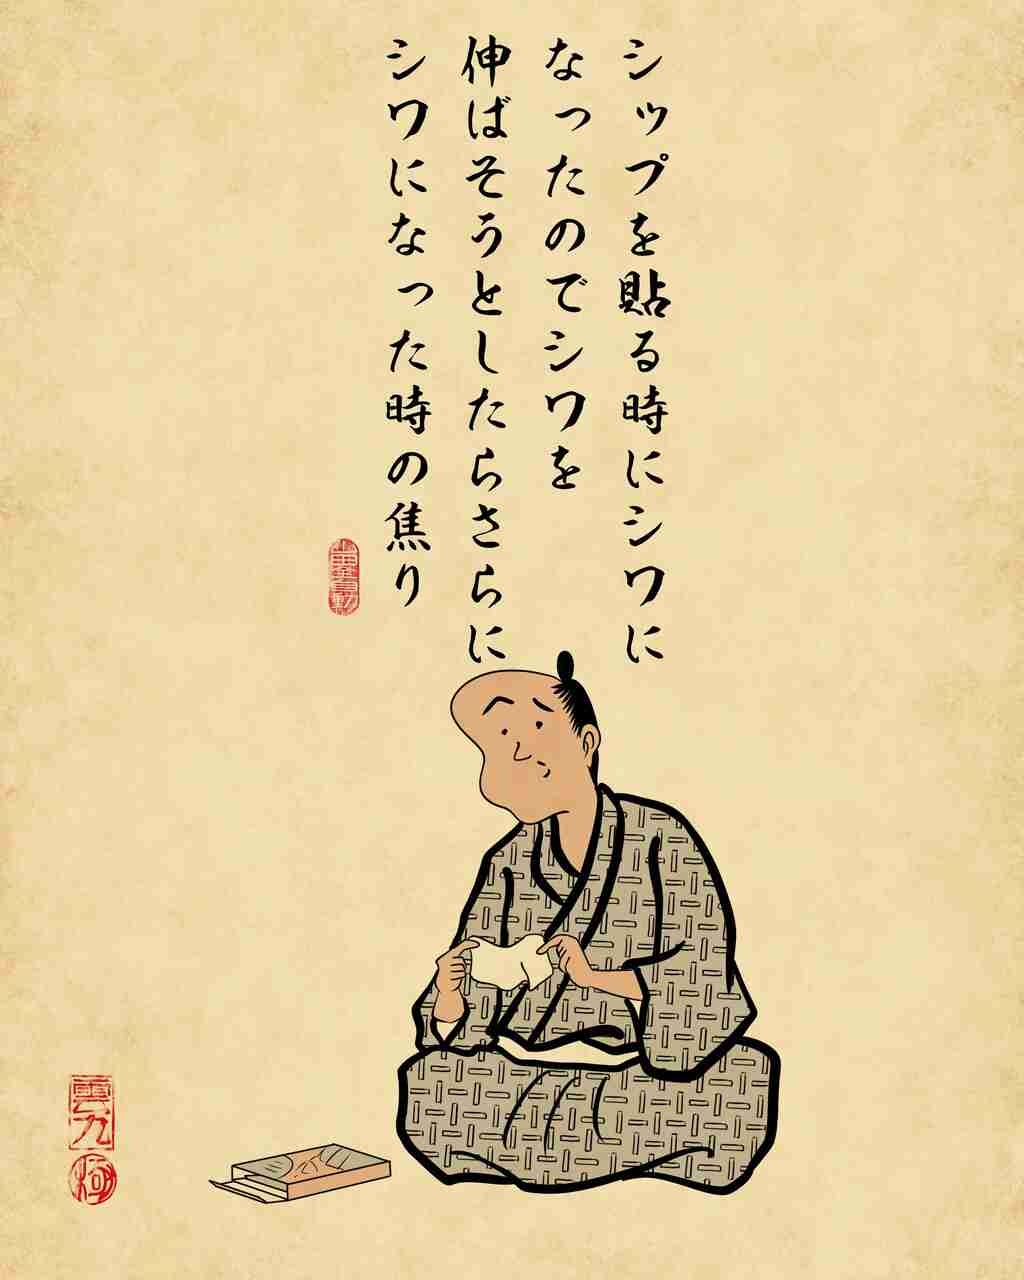 シップを貼る時にシワに
なったのでシワを
伸ばそうとしたらさらに
シワになった時の焦り